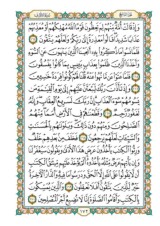 وَإِذْ قَالَتْ أُمَّةٌ مِّنْهُمْ لِمَ تَعِظُونَ قَوْمًا ٱللَّهُ مُهْلِكُهُمْ أَوْ مُعَذِّبُهُمْ
عَذَابًا شَدِيدًا قَالُوا۟ مَعْذِرَةً إِلَىٰ رَبِّكُمْ وَلَعَلَّهُمْ يَتَّقُونَ
فَلَمَّا نَسُوا۟ مَا ذُكِّرُوا۟ بِهِۦٓ أَنجَيْنَا ٱلَّذِينَ يَنْهَوْنَ عَنِ ٱلسُّوٓءِ
وَأَخَذْنَا ٱلَّذِينَ ظَلَمُوا۟ بِعَذَابٍۭ بَـِٔيسٍۭ بِمَا كَانُوا۟ يَفْسُقُونَ
فَلَمَّا عَتَوْا۟ عَن مَّا نُهُوا۟ عَنْهُ قُلْنَا لَهُمْ كُونُوا۟ قِرَدَةً خَـٰسِـِٔينَ
وَإِذْ تَأَذَّنَ رَبُّكَ لَيَبْعَثَنَّ عَلَيْهِمْ إِلَىٰ يَوْمِ ٱلْقِيَـٰمَةِ مَن يَسُومُهُمْ
سُوٓءَ ٱلْعَذَابِ إِنَّ رَبَّكَ لَسَرِيعُ ٱلْعِقَابِ وَإِنَّهُۥ لَغَفُورٌ
رَّحِيمٌ وَقَطَّعْنَـٰهُمْ فِى ٱلْأَرْضِ أُمَمًا مِّنْهُمُ
ٱلصَّـٰلِحُونَ وَمِنْهُمْ دُونَ ذَٰلِكَ وَبَلَوْنَـٰهُم بِٱلْحَسَنَـٰتِ
وَٱلسَّيِّـَٔاتِ لَعَلَّهُمْ يَرْجِعُونَ فَخَلَفَ مِنۢ بَعْدِهِمْ خَلْفٌ
وَرِثُوا۟ ٱلْكِتَـٰبَ يَأْخُذُونَ عَرَضَ هَـٰذَا ٱلْأَدْنَىٰ وَيَقُولُونَ سَيُغْفَرُ لَنَا
وَإِن يَأْتِهِمْ عَرَضٌ مِّثْلُهُۥ يَأْخُذُوهُ أَلَمْ يُؤْخَذْ عَلَيْهِم مِّيثَـٰقُ ٱلْكِتَـٰبِ
أَن لَّا يَقُولُوا۟ عَلَى ٱللَّهِ إِلَّا ٱلْحَقَّ وَدَرَسُوا۟ مَا فِيهِ وَٱلدَّارُ ٱلْـَٔاخِرَةُ
خَيْرٌ لِّلَّذِينَ يَتَّقُونَ أَفَلَا تَعْقِلُونَ وَٱلَّذِينَ يُمَسِّكُونَ
بِٱلْكِتَـٰبِ وَأَقَامُوا۟ ٱلصَّلَوٰةَ إِنَّا لَا نُضِيعُ أَجْرَ ٱلْمُصْلِحِينَ
١٧٢